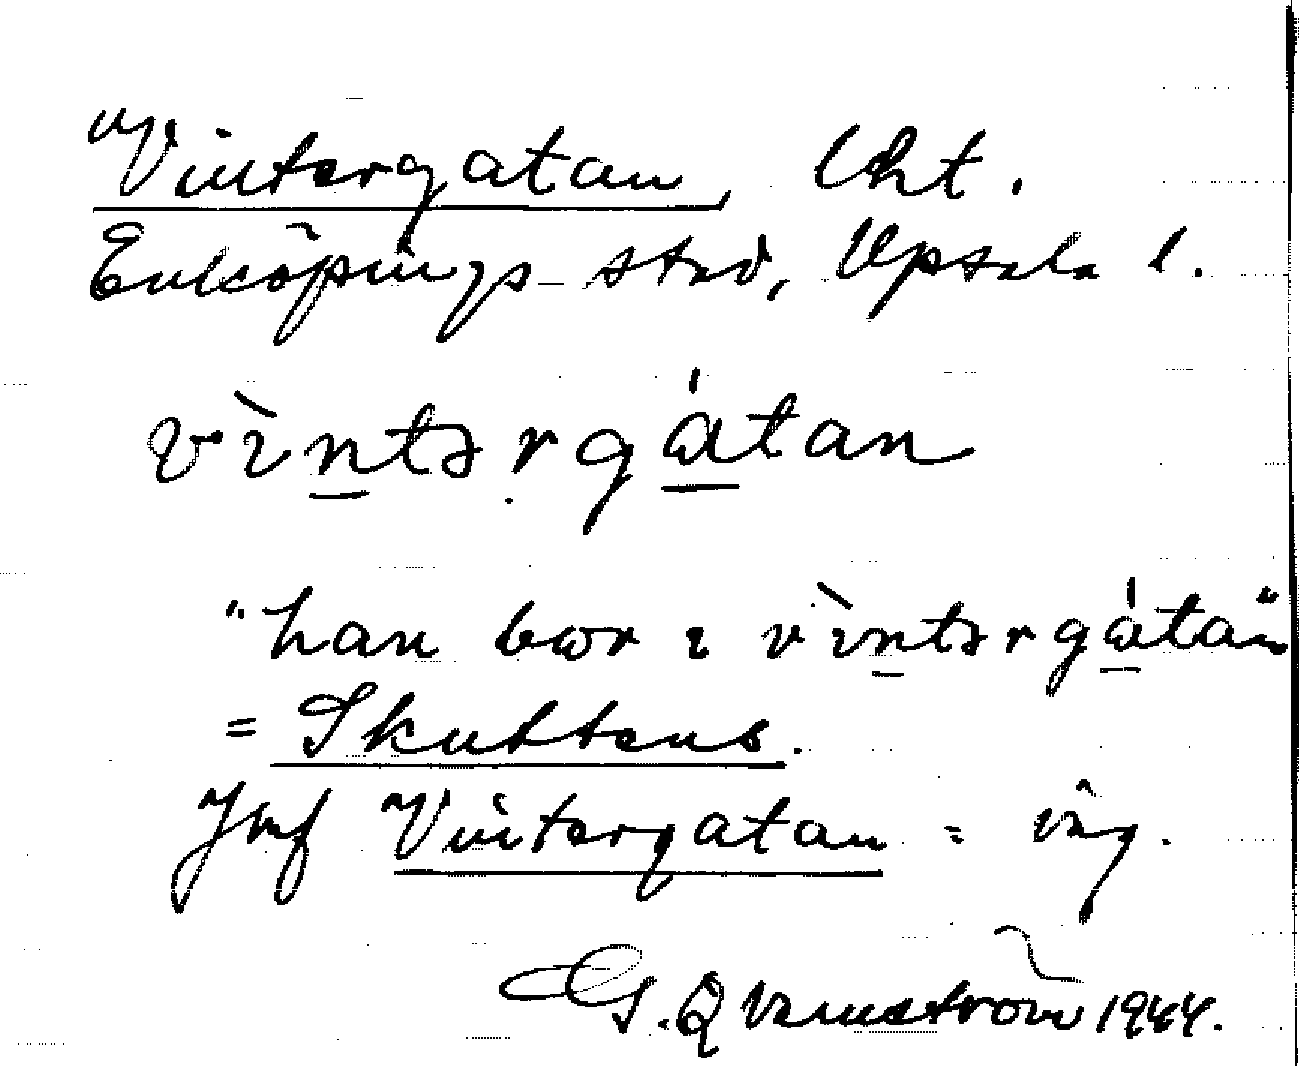 "Vintergatan, lht.
Enköpings stad, Upsala l.
vìntərgátan
"han bor ɩ vìntərgátan"
= Skuttens.
Jmf Vintergatan = väg.
G. Qvarnström 1944.